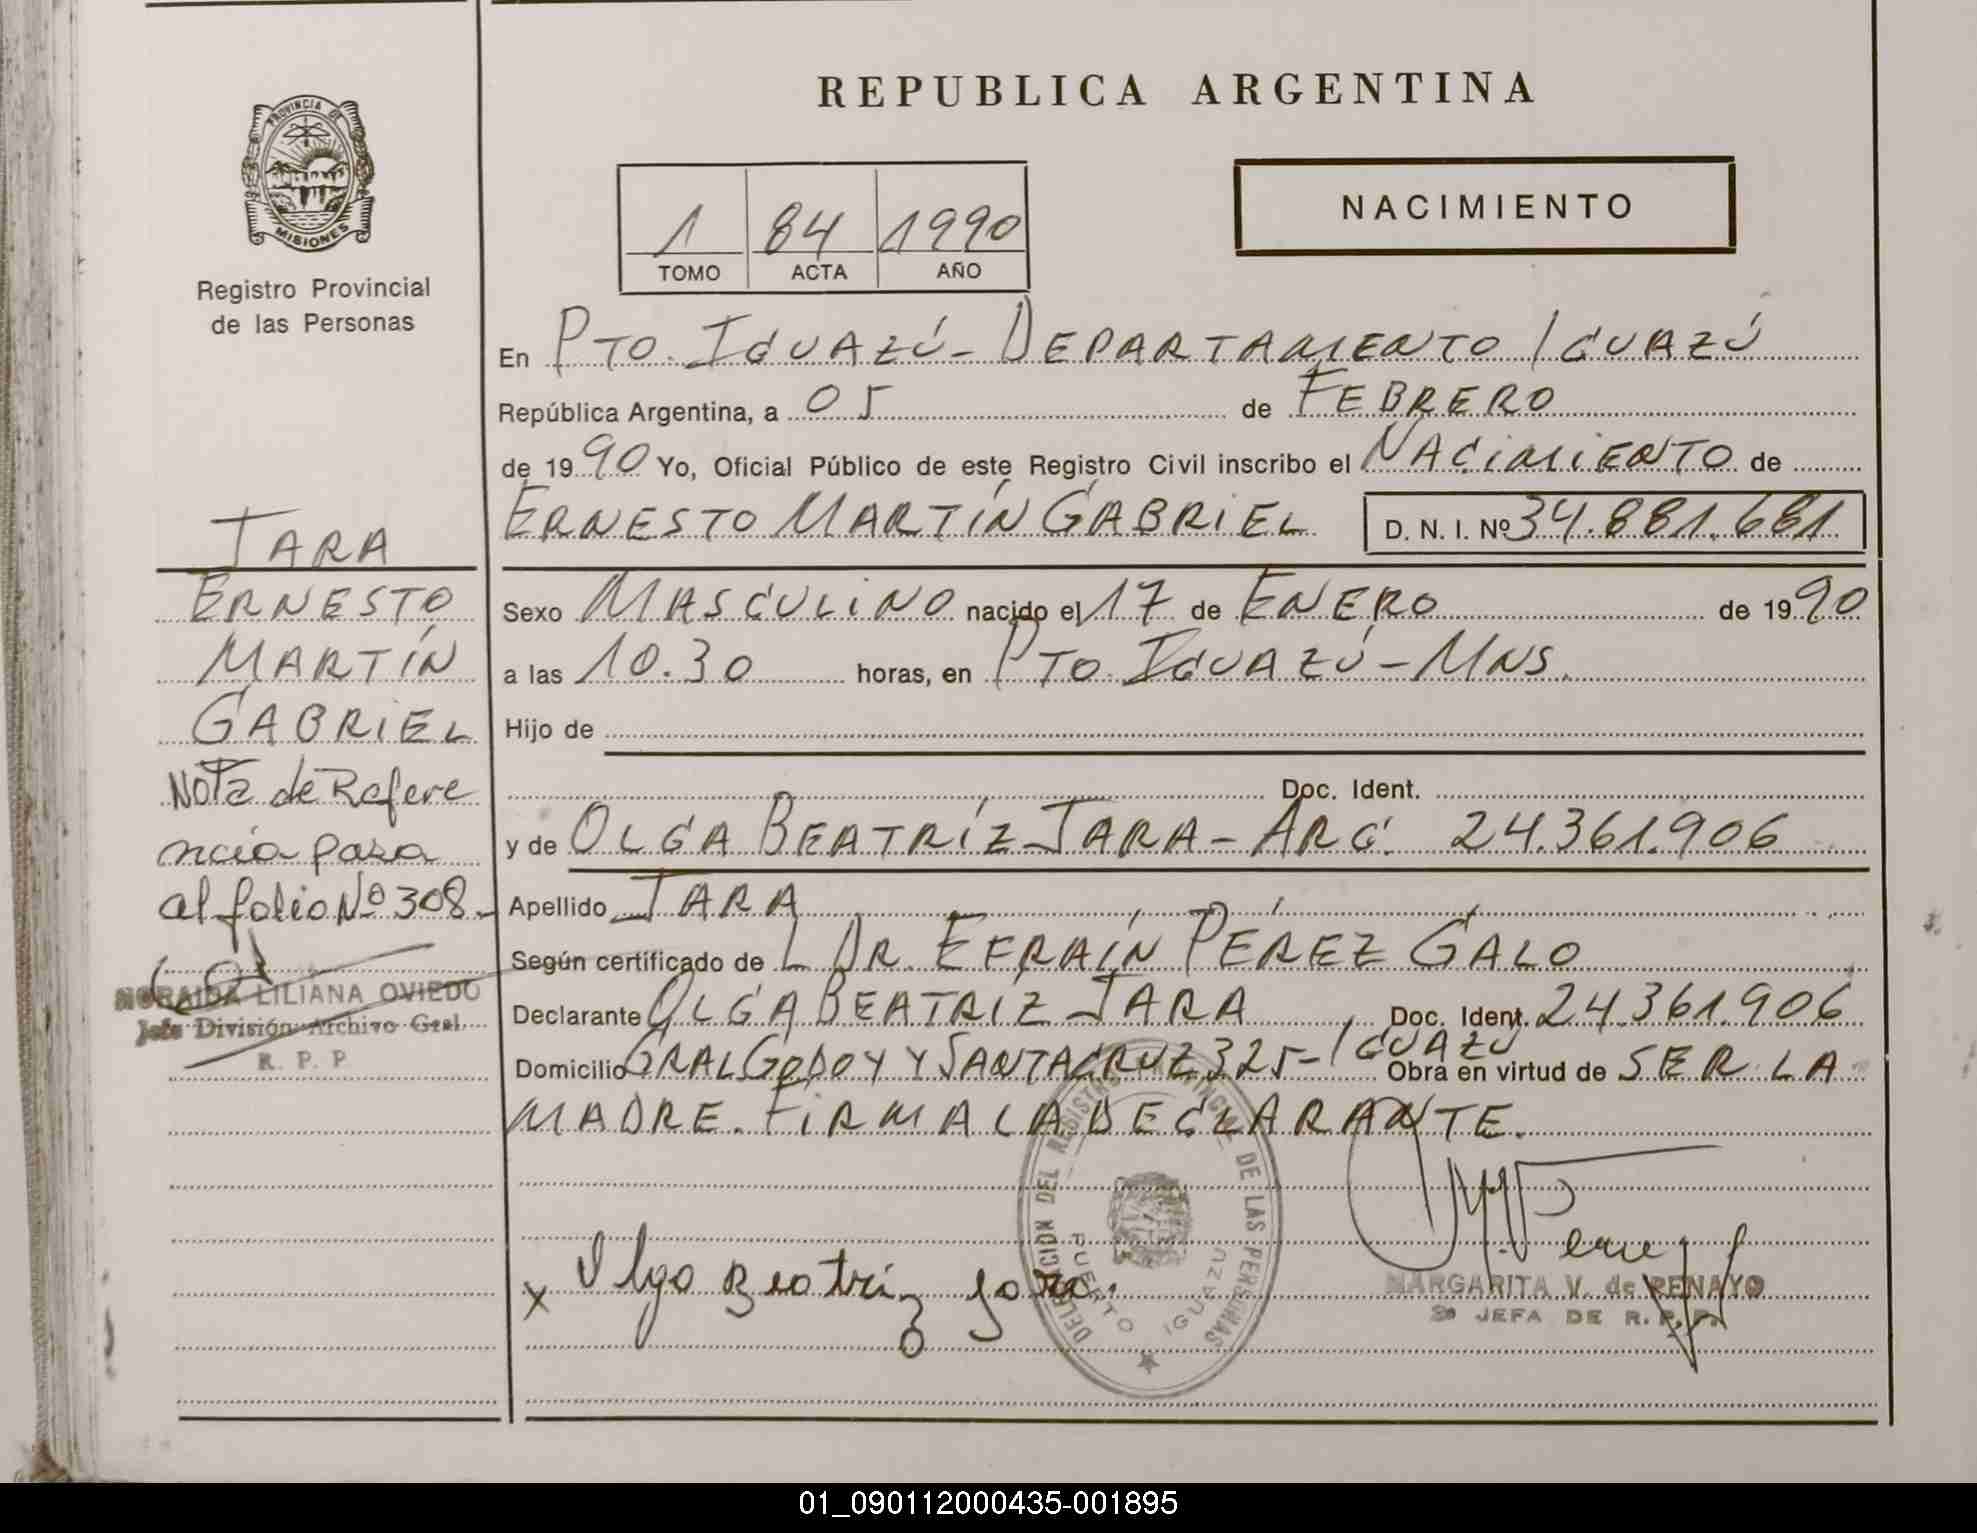 REPUBLICA ARGENTINA
PROVINCIA DE
MISIONES
Registro Provincial
de las Personas
1 84 1990
TOMO ACTA AÑO
NACIMIENTO
En PTO. IGUAZÚ - DEPARTAMENTO IGUAZÚ
República Argentina, a 05 de FEBRERO
de 1990 Yo, Oficial Público de este Registro Civil inscribo el NACIMIENTO de
ERNESTO MARTÍN GABRIEL D. N. I. Nº 34.881.681
Sexo MASCULINO nacido el 17 de ENERO de 1990
a las 10.30 horas, en PTO. IGUAZÚ - MNS.
Hijo de
Doc. Ident.
y de OLGA BEATRÍZ JARA - ARG. 24.361.906
Apellido JARA
Según certificado de L DR. EFRAÍN PÉREZ GALO
Declarante OLGA BEATRÍZ JARA Doc. Ident. 24.361.906
Domicilio GRAL GODOY Y SANTA CRUZ 325 - IGUAZÚ Obra en virtud de SER LA
MADRE. FIRMA LA DECLARANTE.
x Olga Beatriz Jara.
DELEGACION DEL REGISTRO PROVINCIAL DE LAS PERSONAS
PUERTO IGUAZU
MARGARITA V. de RENAYO
2ª JEFA DE R. P. P.
JARA
ERNESTO
MARTÍN
GABRIEL
Nota de Refere
ncia pasa
al folio Nº 308.-
NORAIDA LILIANA OVIEDO
Jefe División Archivo Gral.
R. P. P
01_090112000435-001895